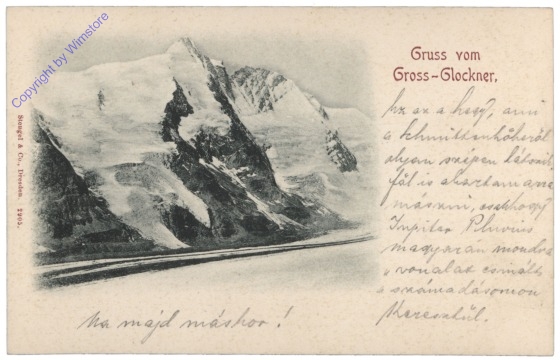 Copyright by Wimstore
Gruss vom
Gross-Glockner,
Stengel & Co., Dresden. 1205.
Ez az a hegy, ami
a Schmittenhöheről
olyan szépen látszik,
föl is akartam arra
mászni, csakhogy
Jupiter Pluvius
magyarán mondva
vonalat csinált
számadásomon
Keresztül.
Na majd máskor!